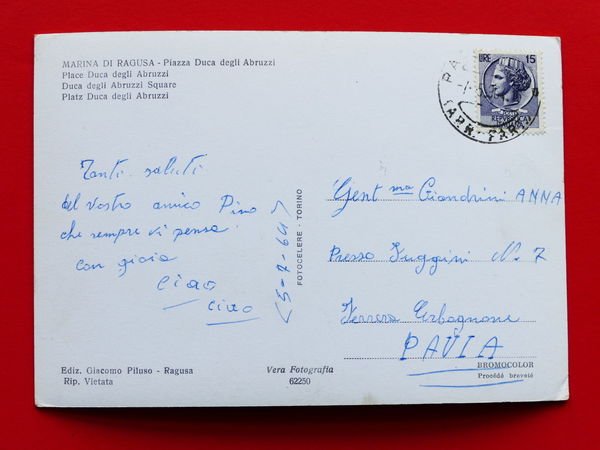 MARINA DI RAGUSA - Piazza Duca degli Abruzzi
Place Duca degli Abruzzi
Duca degli Abruzzi Square
Platz Duca degli Abruzzi
LIRE 15
Tanti saluti
dal vostro amico Pino
che sempre vi pensa
con gioia
Ciao
Ciao
(5-7-64)
FOTOCELERE - TORINO
Gent ma Giandrini ANNA
Presso Fuggini N. 7
Ferrera Erbognone
PAVIA
BROMOCOLOR
Procédé breveté
Ediz. Giacomo Piluso - Ragusa
Rip. Vietata
Vera Fotografia
62250